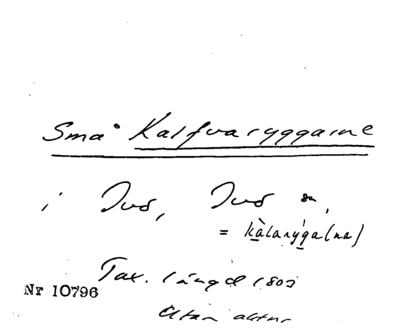 Små Kalfvaryggarne
i Jvs, Jvs sn,
= kàlarýga(na)
Tax. längd 1803
Nr 10796
Utan aktnr